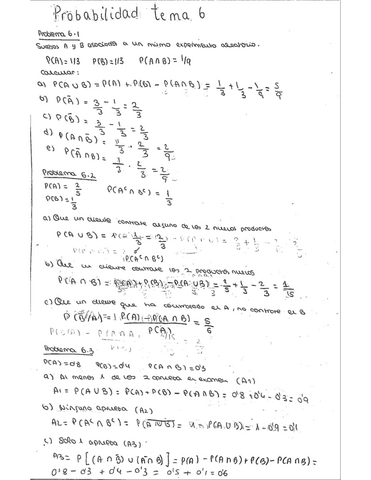 Probabilidad tema 6
Problema 6.1
Sucesos A y B asociados a un mismo experimento aleatorio.
P(A) = 1/3 P(B) = 1/3 P(A∩B) = 1/9
Calcular:
a) P(A∪B) = P(A) + P(B) - P(A∩B) = 1/3 + 1/3 - 1/9 = 5/9
b) P(Ā) = 3/3 - 1/3 = 2/3
c) P(B̄) = 3/3 - 1/3 = 2/3
d) P(A∩B̄) = 1/3 · 2/3 = 2/9
e) P(Ā∩B) = 1/3 · 2/3 = 2/9
Problema 6.2
P(A) = P(Aᶜ∩Bᶜ) = 1/3
P(B) = 1/3
a) Que un cliente contrate alguno de los 2 nuevos productos
P(A∪B) = 1/3 = 2/3
P(Aᶜ∩Bᶜ)
b) Que un cliente contrate los 2 productos nuevos
P(A∩B) = P(A) + P(B) - P(A∪B) = + 1/3 - 2/3 = 1/15
c) Que un cliente que ha contratado el A, no contrate el B
P(B̄/A) = P(A) - P(A∩B) / P(A) = 5/6
Problema 6.3
P(A) = 0'8 P(B) = 0'4 P(A∩B) = 0'3
a) Al menos 1 de los 2 aprueba el examen (A1)
A1 = P(A∪B) = P(A) + P(B) - P(A∩B) = 0'8 + 0'4 - 0'3 = 0'9
b) Ninguno aprueba (A2)
A2 = P(Aᶜ∩Bᶜ) = P(A∪B) = 1 - P(A∪B) = 1 - 0'9 = 0'1
c) Solo 1 aprueba (A3):
A3 = P[(A∩B̄) ∪ (Ā∩B)] = P(A) - P(A∩B) + P(B) - P(A∩B) =
0'8 - 0'3 + 0'4 - 0'3 = 0'5 + 0'1 = 0'6